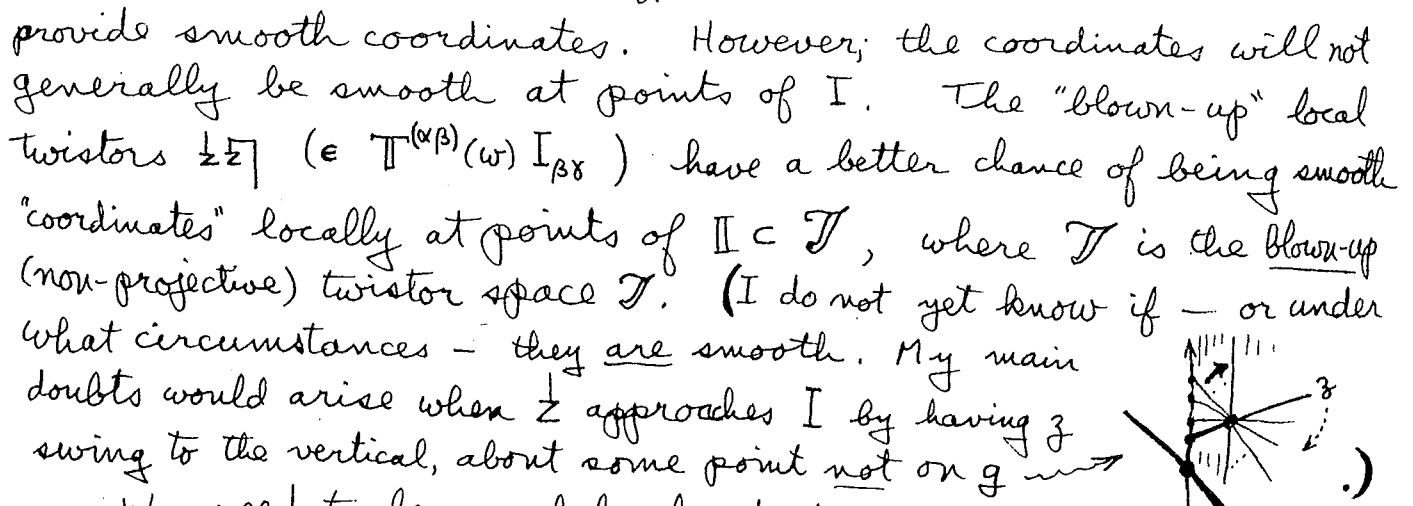 provide smooth coordinates. However, the coordinates will not
generally be smooth at points of I. The "blown-up" local
twistors (∈ 𝕋^(αβ)(w) I_βγ) have a better chance of being smooth
"coordinates" locally at points of 𝕀 ⊂ 𝒯, where 𝒯 is the blown-up
(non-projective) twistor space 𝒯. (I do not yet know if — or under
what circumstances — they are smooth. My main
doubts would arise when Z approaches I by having z
swing to the vertical, about some point not on g
.)
z